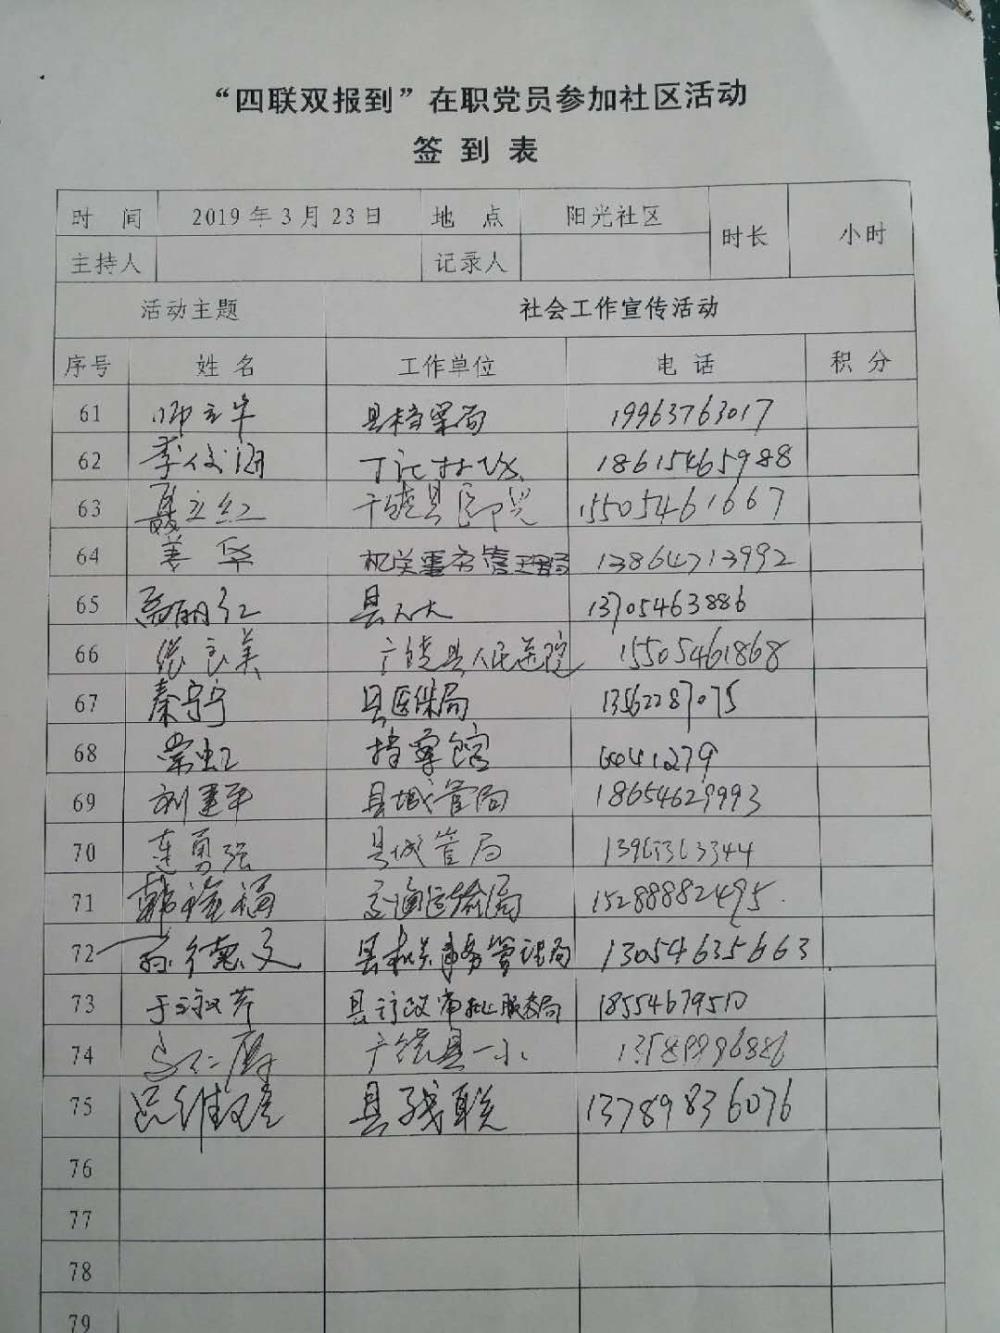 “四联双报到”在职党员参加社区活动
签到表
时间 2019年3月23日 地点 阳光社区 时长 小时
主持人 记录人
活动主题 社会工作宣传活动
序号 姓名 工作单位 电话 积分
61 县档案局 19963763017
62 李俊海 18615465988
63 聂立红 广饶县 15505461667
64 姜华 机关事务管理局 13864713992
65 高丽红 县人大 13705463886
66 张良美 广饶县人民医院 15505461868
67 秦宁宁 县医保局 13562287075
68 常虹 6441279
69 刘建平 县城管局 18654629993
70 连勇强 县城管局
71 韩福 交通运输局 15288882495
72 孙德文 县机关事务管理局 13054635663
73 于淑芹 县行政审批服务局 18554679510
74 广饶县一小 13589996886
75 吕维 县残联 13789836076
76
77
78
79